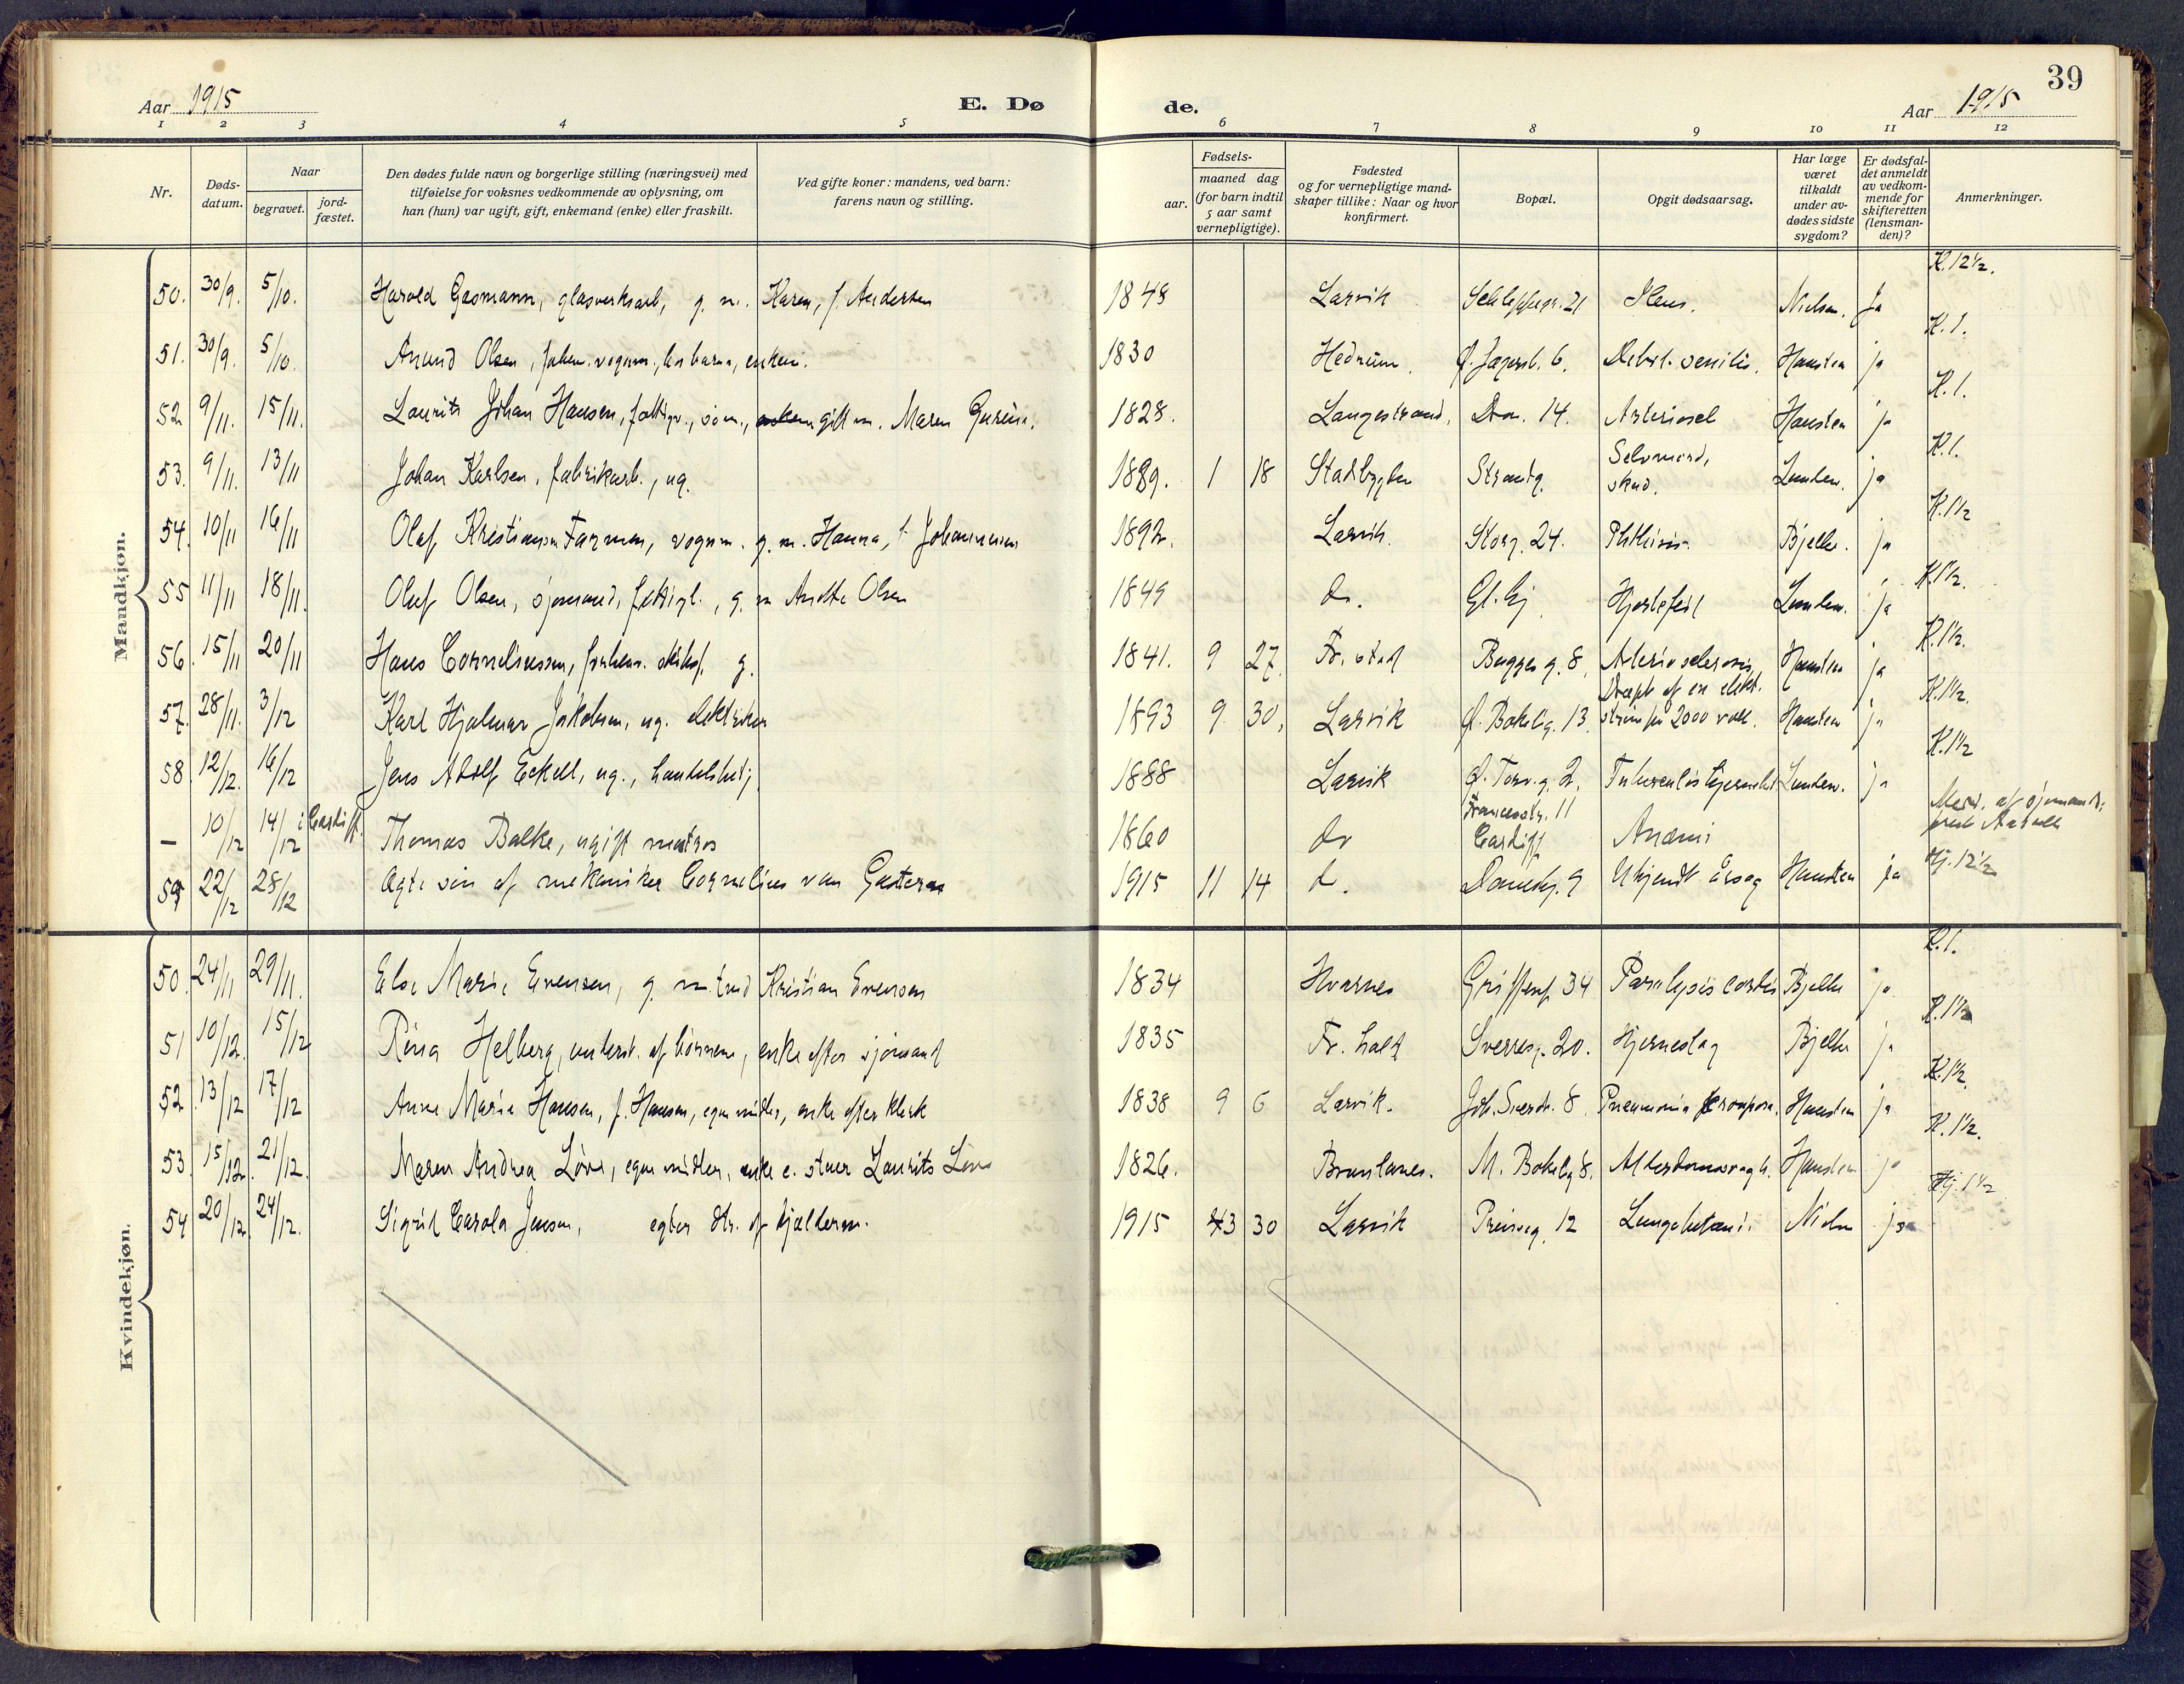 39
Aar 1915 E. Dø de. Aar 1915
1 2 3 4 5 6 7 8 9 10 11 12
Nr.
Døds-datum.
Naar
begravet.
jord-fæstet.
Den dødes fulde navn og borgerlige stilling (næringsvei) med
tilføielse for voksnes vedkommende av oplysning, om
han (hun) var ugift, gift, enkemand (enke) eller fraskilt.
Ved gifte koner: mandens, ved barn:
farens navn og stilling.
Fødsels-
aar.
maaned dag
(for barn indtil
5 aar samt
vernepligtige).
Fødested
og for vernepligtige mand-
skaper tillike: Naar og hvor
konfirmert.
Bopæl.
Opgit dødsaarsag.
Har læge
været
tilkaldt
under av-
dødes sidste
sygdom?
Er dødsfal-
det anmeldt
av vedkom-
mende for
skifteretten
(lensman-
den)?
Anmerkninger.
Mandkjøn.
50. 30/9. 5/10. Harald Gasmann, glasverksarb, g. m. Karen, f. Andersen 1848 Larvik 21 Ileus. Nielsen. Ja K. 12 1/2.
51. 30/9. 5/10. Anund Olsen, vognm., hos barna, enkem. 1830 Hedrum. 6. Debil. senilis. Hansten ja K. 1.
52 9/11. 15/11. Laurits Johan Hansen, fattigv., gift m. Maren 1828. Langestrand. Do. 14. Arteriosel Hansten ja K. 1.
53. 9/11. 13/11 Johan Karlsen, fabrikarb., ug. 1889. 1 18 Stadsbygden Strandg. Selvmord, skud. Lunden. ja K. 1.
54. 10/11 16/11 Olaf Kristiansen Farmen, vognm. g. m. Hanna, f. Johannessen 1892. Larvik. Storg. 24. Phthisis. Bjelke. ja K. 1 1/2
55 11/11 18/11. Oluf Olsen, sjømand, fattigl., g. m Anette Olsen 1849 do. Gl. Hjertefeil Lunden. ja K. 1 1/2.
56. 15/11 20/11 Hans Corneliussen, forhenv. g. 1841. 9 27. Fr. stad Bugges g. 8. Arteriosclerosis, Hansten ja K. 1 1/2.
57. 28/11. 3/12 Karl Hjalmar Jakobsen, ug. elektriker 1893 9. 30. Larvik Ø. Bøkelig. 13. Dræpt af en elekt. strøm paa 2000 volt. Hansten ja K. 1 1/2.
58 12/12. 16/12 Jens Adolf Eckell, ug., handelsbetj. 1888 Larvik Ø. Torvg. 2. Tuberculos Lunden. ja K. 1 1/2
— 10/12 14/12 i Cardiff. Thomas Balke, ugift matros 1860 do 11 Cardiff Anæmi Med. af sjømands-
59 22/12 28/12 Ægte søn af mekaniker Cornelius van Gasteren 1915 11 14 do. 9 Ukjendt årsag Hansten ja Hj. 12 1/2
Kvindekjøn.
50. 24/11 29/11. Else Marie Evensen, g. m. Kristian Evensen 1834 Hvarnes Griffenf. 34 Paralysis cordis Bjelke ja K. 1.
51 10/12. 15/12 Rina Helberg, underst. af børnene, enke efter sjømand 1835 Fr. hald Sverresg. 20. Hjerneslag Bjelke ja K. 1 1/2
52 13/12 17/12 Anne Marie Hansen, f. Hansen, egne midler, enke efter klerk 1838 9 6 Larvik. Joh. Sverdr. 8. Pneumonia krouposa. Hansten ja K. 1 1/2.
53. 15/12. 21/12. Maren Andrea Løve, egne midler, enke e. stuer Laurits Løve 1826. Brunlanes. M. Bøkelig 8. Alderdomssvagh. Hansten ja K. 1 1/2.
54 20/12 24/12. Sigrid Carola Jensen, egten dtr. af fjælderm. 1915 3 30 Larvik 12 Nielsen ja Hj. 1 1/2